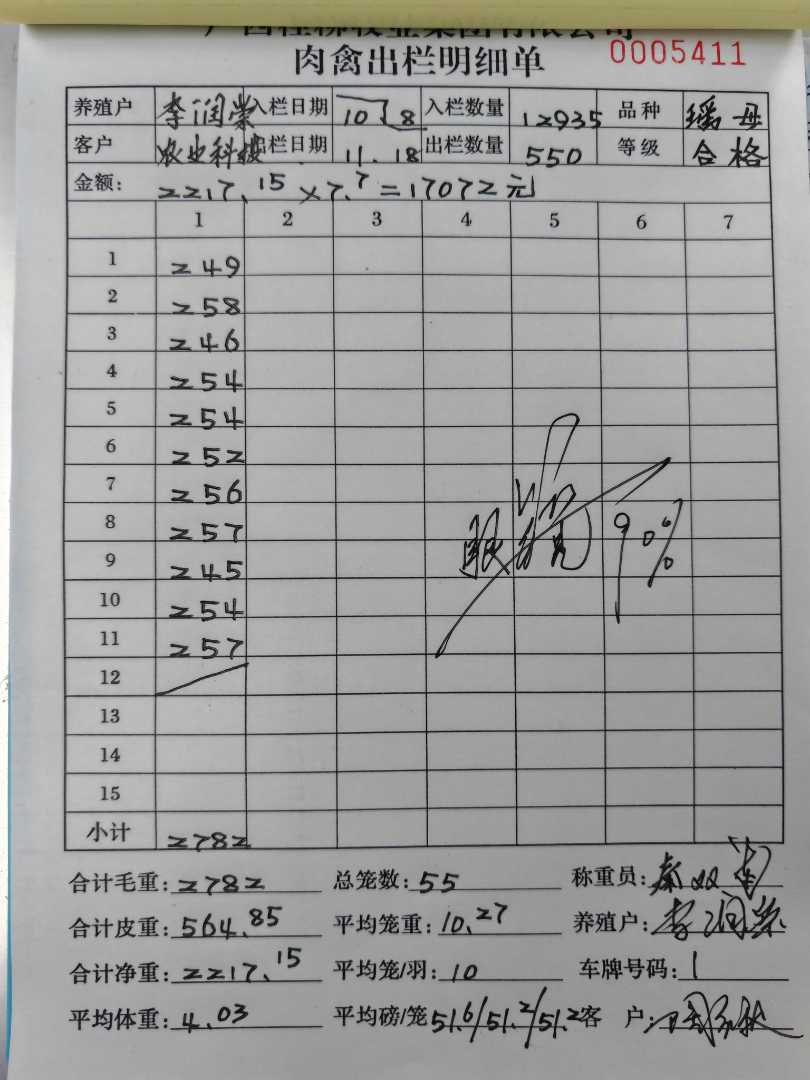 肉禽出栏明细单 0005411
养殖户 李润荣 入栏日期 10.8 入栏数量 12935 品种 瑶母
客户 农业科技 出栏日期 11.18 出栏数量 550 等级 合格
金额: 2217.15×7.7=17072元
1 2 3 4 5 6 7
1 249
2 258
3 246
4 254
5 254
6 252
7 256
8 257
9 245
10 254
11 257
12
13
14
15
90%
小计 2782
合计毛重: 2782 总笼数: 55 称重员: 秦双
合计皮重: 564.85 平均笼重: 10.27 养殖户: 李润荣
合计净重: 2217.15 平均笼/羽: 10 车牌号码: 1
平均体重: 4.03 平均磅/笼 51.6/51.2/51.2 客户: